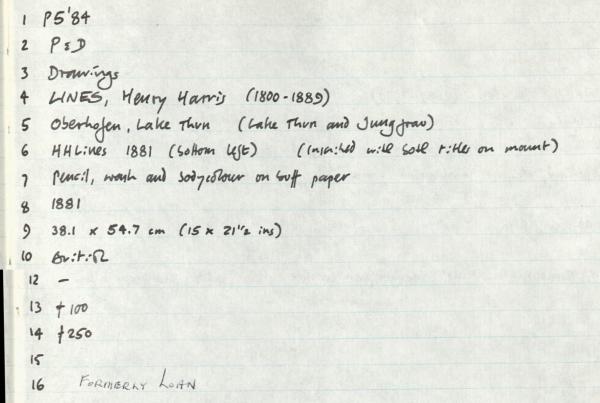 1 P5'84
2 P & D
3 Drawings
4 LINES, Henry Harris (1800-1889)
5 Oberhofen, Lake Thun (Lake Thun and Jungfrau)
6 HHLines 1881 (bottom left) (inscribed with both titles on mount)
7 Pencil, wash and bodycolour on buff paper
8 1881
9 38.1 x 54.7 cm (15 x 21½ ins)
10 British
12 -
13 £100
14 £250
15
16 FORMERLY LOAN